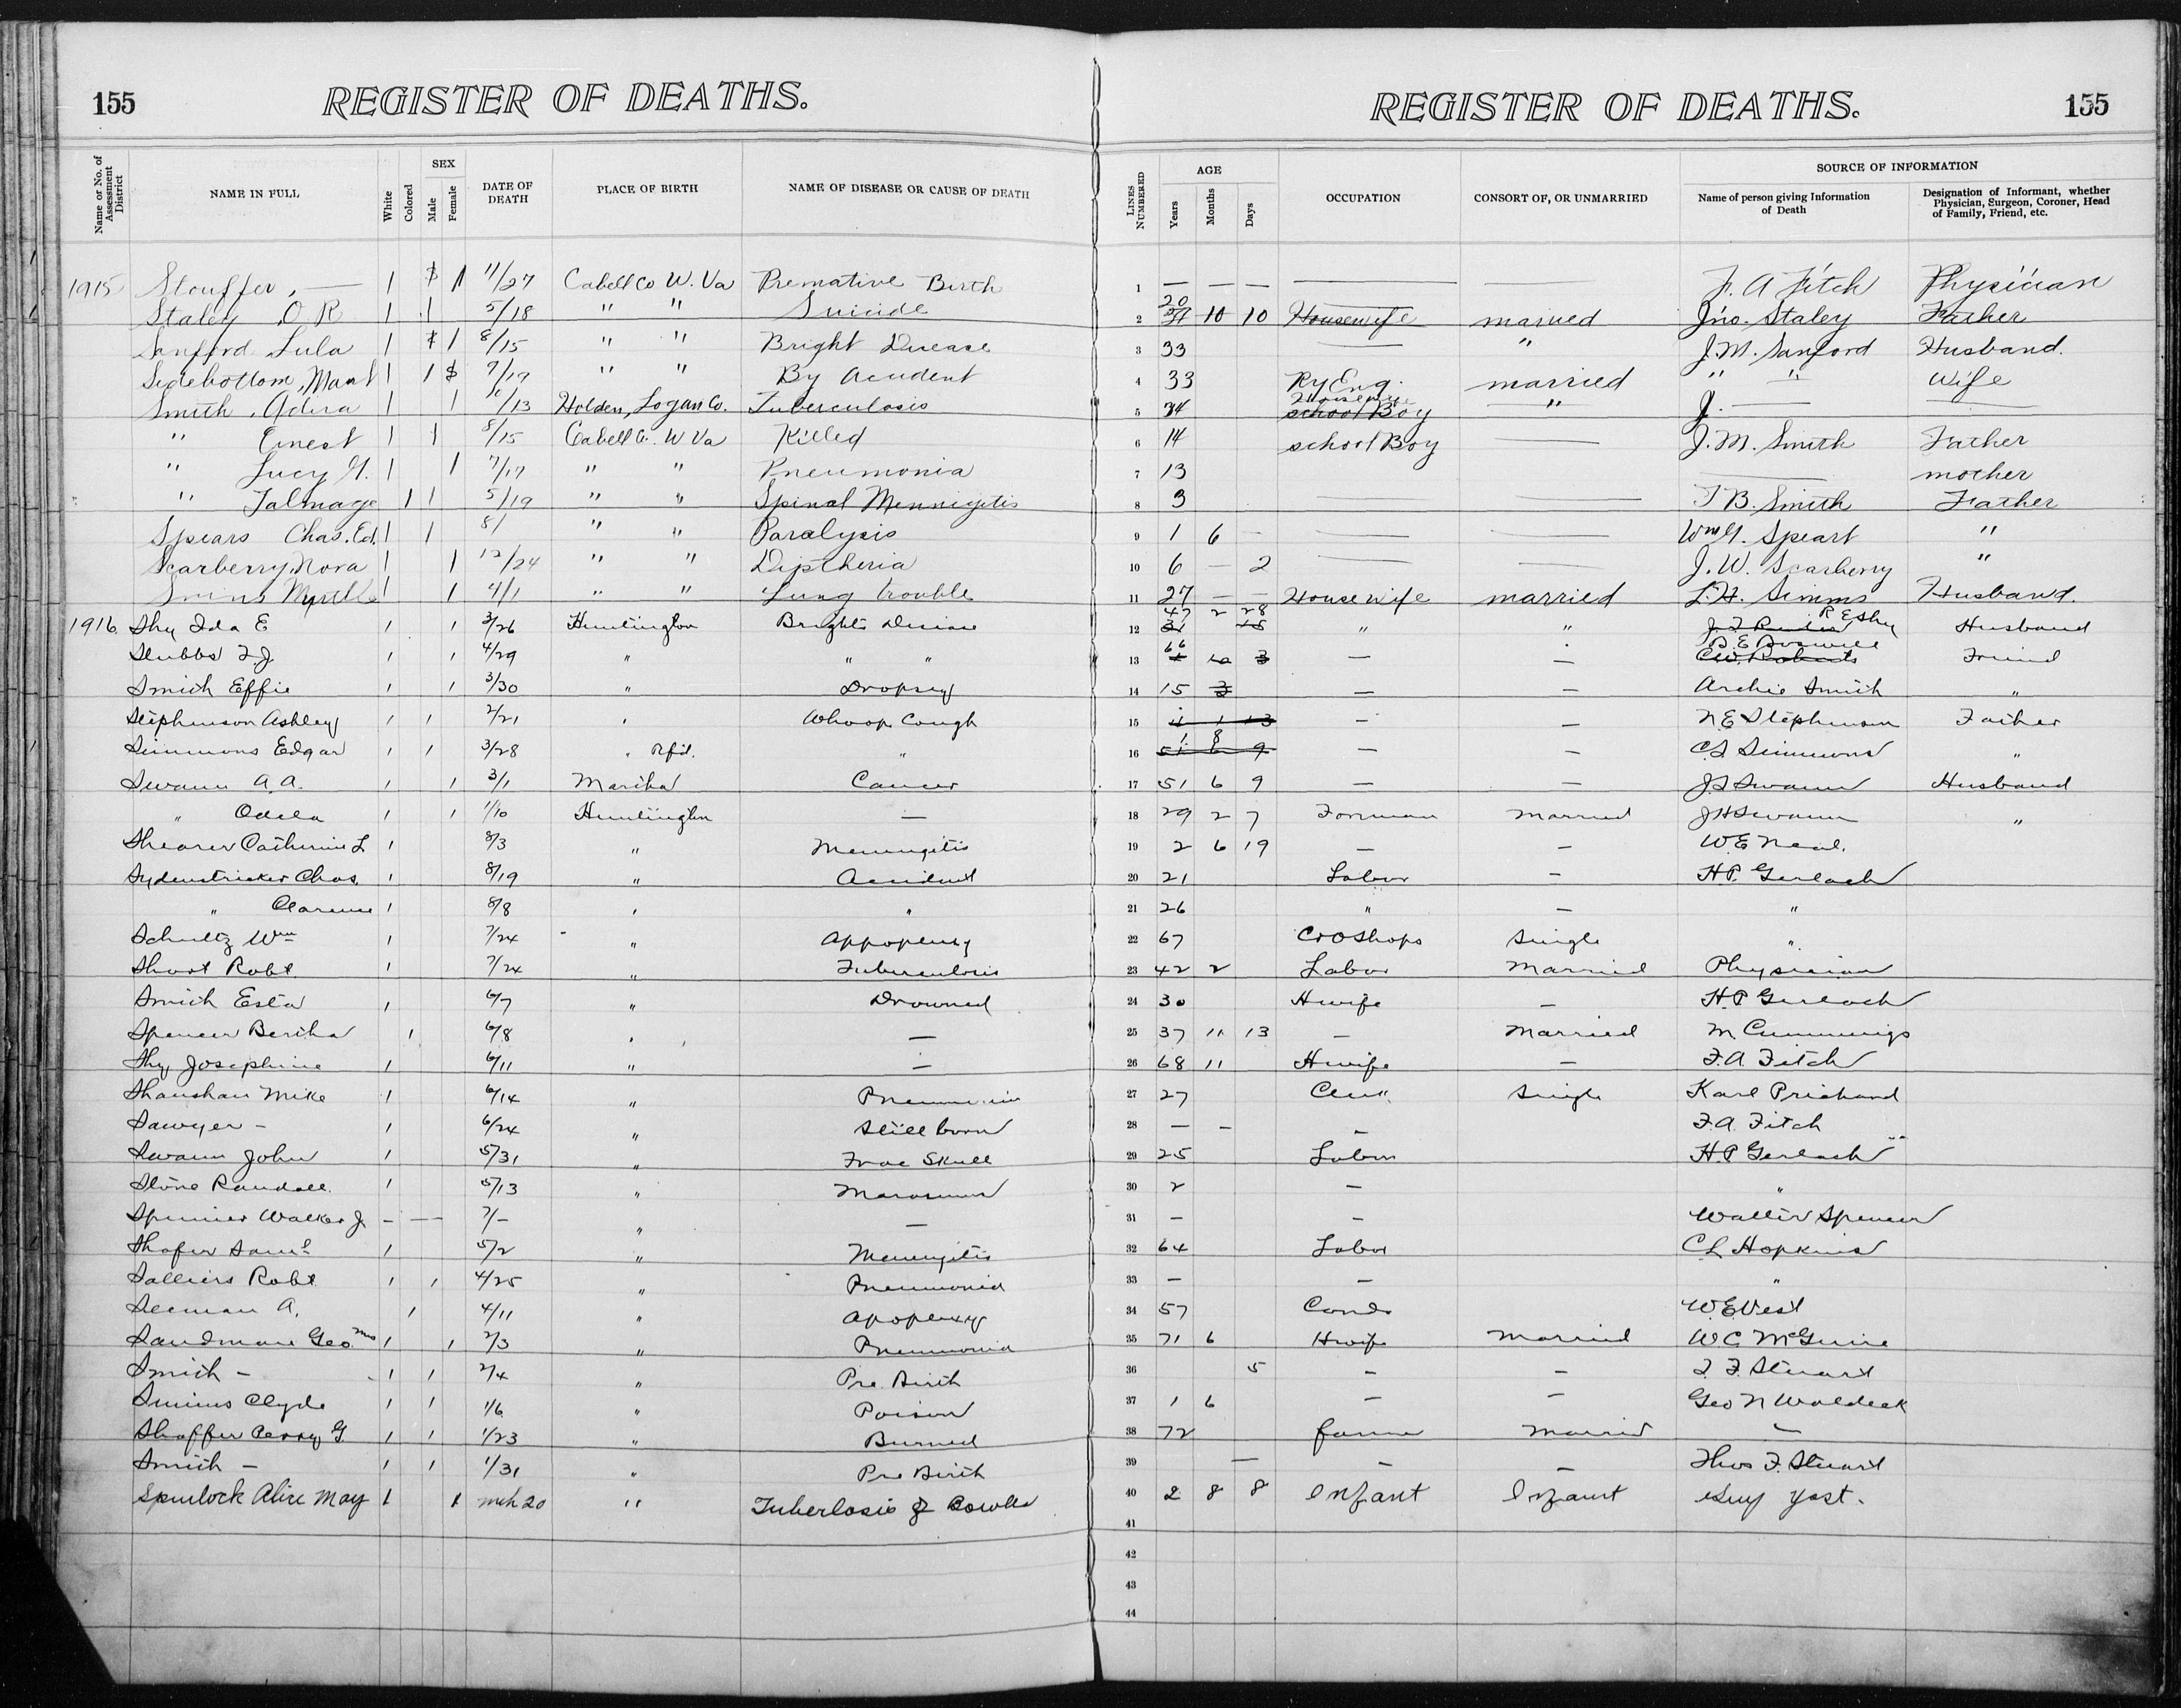 155
REGISTER OF DEATHS.
Name or No. of Assessment District
NAME IN FULL
White
Colored
SEX
Male
Female
DATE OF DEATH
PLACE OF BIRTH
NAME OF DISEASE OR CAUSE OF DEATH
1915 Stouffer, — 1 1 11/27 Cabell Co W. Va Premative Birth
Staley, O R 1 1 5/18 " " Suicide
Sanford Lula 1 1 8/15 " " Bright Disease
Sidebottom, 1 1 9/19 " " By Acident
Smith, Adira 1 1 /13 Holden, Logan Co. Tuberculosis
" Ernest 1 1 8/15 Cabell Co. W Va Killed
" Lucy 1 1 7/17 " " Pneumonia
" Talmage 1 1 5/19 " " Spinal Mennigitis
Spears Chas. Ed. 1 1 8/ " " Paralysis
Scarberry, Nora 1 1 12/24 " " Diptheria
Myrtle 1 1 4/1 " " Lung trouble
1916 Shy Ida E 1 1 3/26 Huntington Brights Disease
Stubbs 1 1 4/29 " " "
Smith Effie 1 1 3/30 " Dropsy
Stephenson Ashley 1 1 2/21 " Whoop Cough
Simmons Edgar 1 1 3/28 " Rfd. "
Swann A.A. 1 1 3/1 Martha Cancer
" Odela 1 1 1/10 Huntington —
Shearer Catherine L 1 8/3 " Meningitis
Sydenstricker Chas. 1 8/19 " Accident
" Clarence 1 8/8 " "
Schultz Wm 1 7/24 " Appoplexy
Short Robt. 1 7/24 " Tuberculosis
Smith Esta 1 6/7 " Drowned
Spencer Bertha 1 6/8 " —
Shy Josephine 1 6/11 " —
Shanshan Mike 1 6/14 "
Sawyer - 1 6/24 " Still born
Swann John 1 5/31 " Frac Skull
Stone Randall 1 5/13 " Marasmus
Walker J. - — 7/- " —
Shafer Saml 1 5/2 " Meningitis
Salliers Robt 1 1 4/25 " Pneumonia
Seeman A. 1 4/11 " Apoplexy
Sandman Geo. Mrs 1 1 2/3 " Pneumonia
Smith - 1 1 2/4 " Pre. Birth
Clyde 1 1 1/6 " Poison
Shaffer Perry G. 1 1 1/23 " Burned
Smith - 1 1 1/31 " Pre Birth
Spurlock Alice May 1 1 mch 20 " Tuberlosis of Bowlls
REGISTER OF DEATHS.
155
LINES NUMBERED
AGE
Years
Months
Days
OCCUPATION
CONSORT OF, OR UNMARRIED
SOURCE OF INFORMATION
Name of person giving Information of Death
Designation of Informant, whether Physician, Surgeon, Coroner, Head of Family, Friend, etc.
1 — — — — — F. A Fitch Physician
2 20 10 10 Housewife married Jno. Staley Father
3 33 — " J. M. Sanford Husband.
4 33 Ry Eng. married " " Wife
5 34 Housewife school Boy — " — J. — —
6 14 school Boy — J. M. Smith Father
7 13 — mother
8 3 — — T B. Smith Father
9 1 6 - — — Wm Speart "
10 6 — 2 — — J. W. Scarberry "
11 27 — — Housewife married L. H. Simms Husband.
12 47 2 28 31 15 " " R E Shy Husband
13 66 10 3 — - C.W. Roberts Friend
14 15 3 — — Archie Smith "
15 4 1 13 — — N E Stephenson Father
16 1 8 51 6 9 — — Simmons "
17 51 6 9 — — Swann Husband
18 29 2 7 Forman Married J H Swann "
19 2 6 19 — — W. E Neal.
20 21 Labor — H. P. Gerlach
21 26 " — "
22 67 C&O Shops Single "
23 42 2 Labor Married Physician
24 30 Hwife — H. P Gerlach
25 37 11 13 — Married M Cummings
26 68 11 Hwife — F. A. Fitch
27 27 Single Karl Prichard
28 — - — F. A. Fitch
29 25 Labor H. P Gerlach
30 2 — "
31 — — Walter Spencer
32 64 Labor C L Hopkins
33 — — "
34 57 Condr W. E Vest
35 71 6 Hwife Married W C McGuire
36 5 — — F. Stuart
37 1 6 — — Geo N Woldeck
38 72 farmer Married —
39 — — — Thos F. Stuart
40 2 8 8 Infant Infant Guy Yost.
41
42
43
44